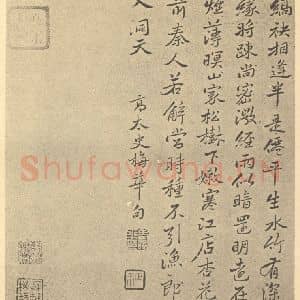 縞袂相逢半是僊平生水竹有深
緣將疎尚密微經雨似暗還明遠在
煙薄暝山家松樹下嫩寒江店杏花
前秦人若解當時種不引漁郎
入洞天 高太史梅華句
Shufawang.CN